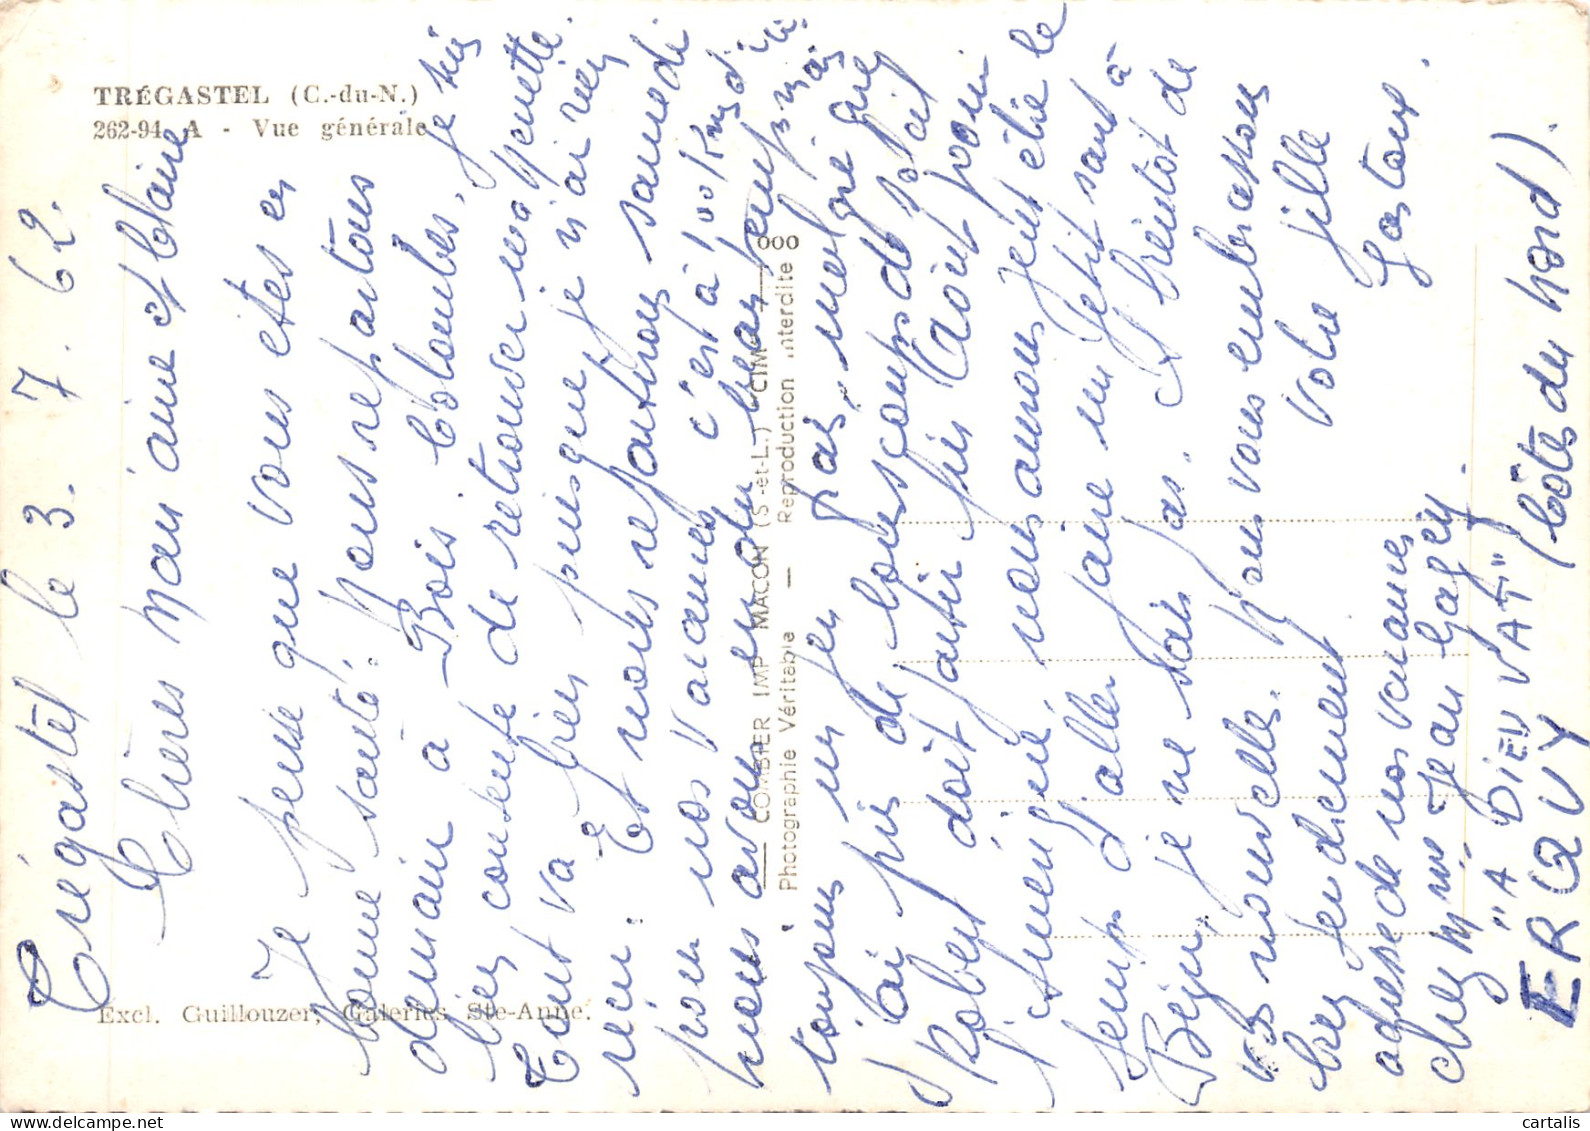 TRÉGASTEL (C.-du-N.)
262-94 A - Vue générale
Excl. Guillouzer, Galeries Ste-Anne.
COMBIER IMP. MACON (S.-et-L.) "CIM"
Photographie Véritable — Reproduction interdite
000
Trégastel le 3. 7. 62.
Chères Mémaine et Claire
Je pense que vous êtes en
bonne santé. Nous repartons
demain à Bois. Colombes, je suis
bien contente de retrouver ma
Tout va bien puisque je n'ai rien
rien. Et nous repartirons samedi
pour nos vacances c'est à 100 kms d'ici.
nous avons eu du beau temps mais
toujours un peu gris, malgré que
j'ai pris de bons coups de soleil
Robert doit partir fin Août pour
l'Armée, nous aurons peut être le
temps d'aller faire un petit saut à
je ne sais pas. A bientôt de
vos nouvelles. Nous vous embrassons
bien tendrement Votre fille
adresse de nos vacances
chez Mme Jean
"A DIEU VAT" (Côtes du Nord).
ERQUY